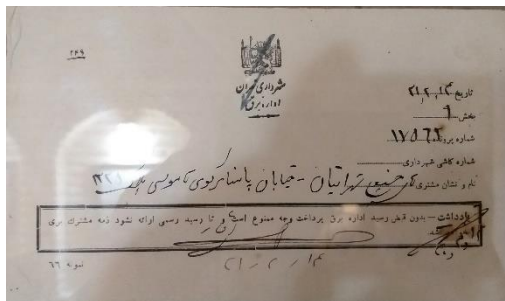 ۲۴۹
شهرداری تهران
اداره برق
تاریخ ۲۱٫۲٫۱۴
بخش ۹
شماره پرونده ۱۷۵۶۲
شماره کاشی شهرداری
نام و نشان مشتری تهرانیان - خیابان پاستور کوی
یادداشت - بدون قبض رسید اداره برق پرداخت وجه ممنوع است و تا رسید رسمی ارائه نشود ذمه مشترک بری
نمونه ۶۶
۱۴ ر ۲ ر ۲۱